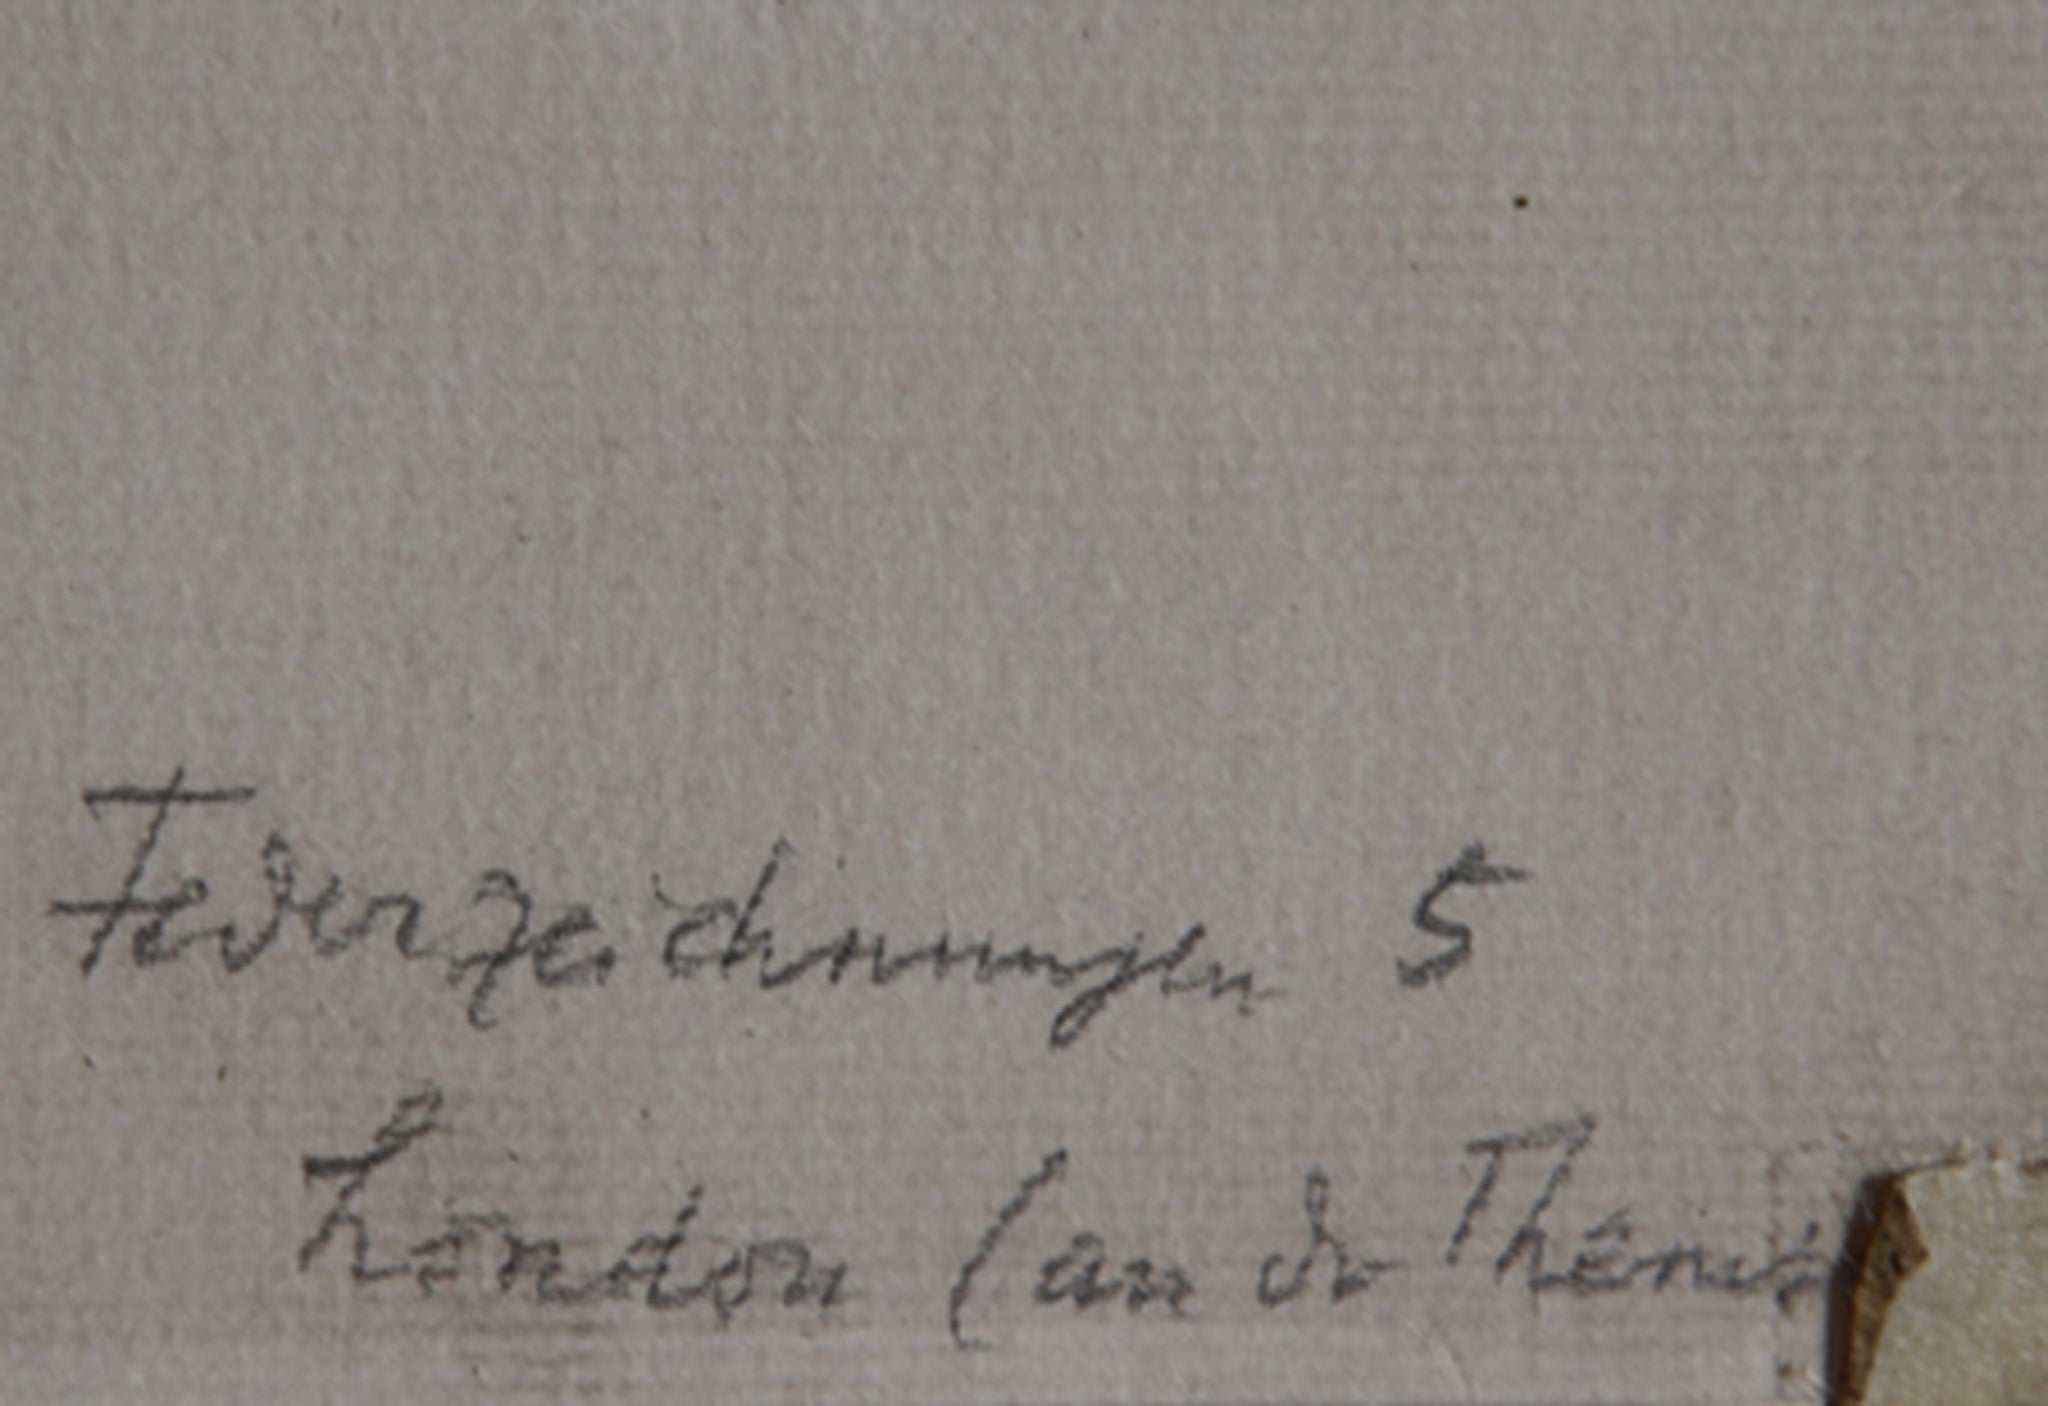 Federzeichnungen 5
London (an der Thems